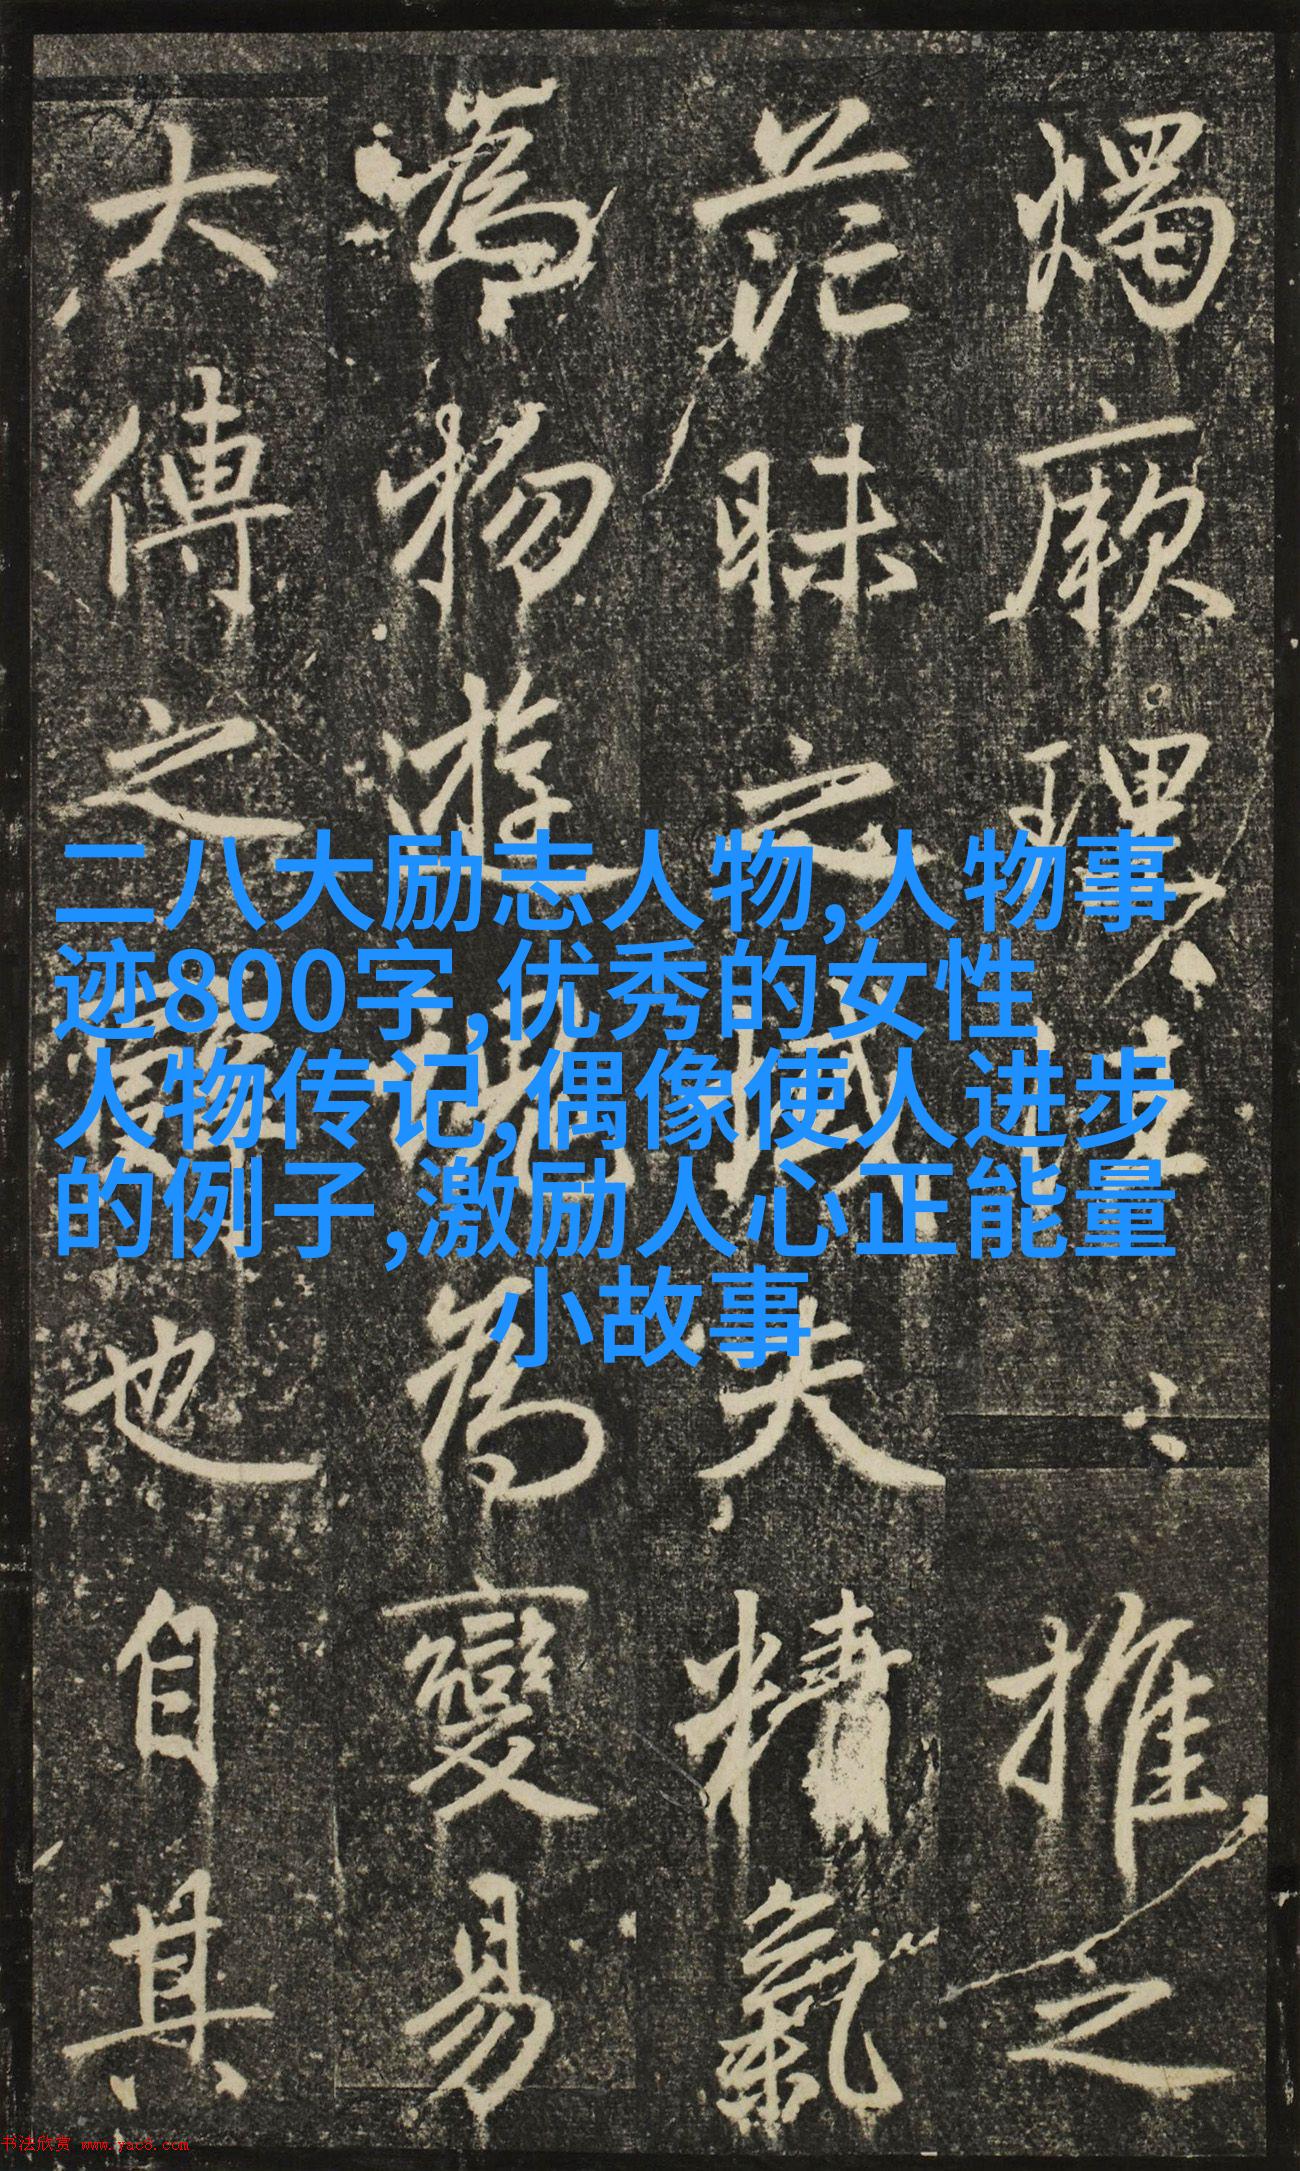 燭厥理推之
茫昧之域夫精氣
為物遊魂為變易
大傳之辭也自其
二八大励志人物,人物事
迹800字,优秀的女性
人物传记,偶像使人进步
的例子,激励人心正能量
小故事
书法欣赏 www.yac8.com